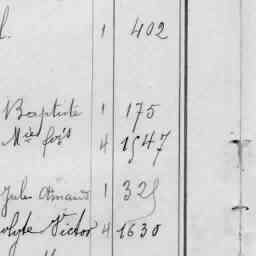 l. 1 402
Baptiste 1 175
Mie frs 4 1547
Jules Armand 1 325
olyte Victor 4 1630